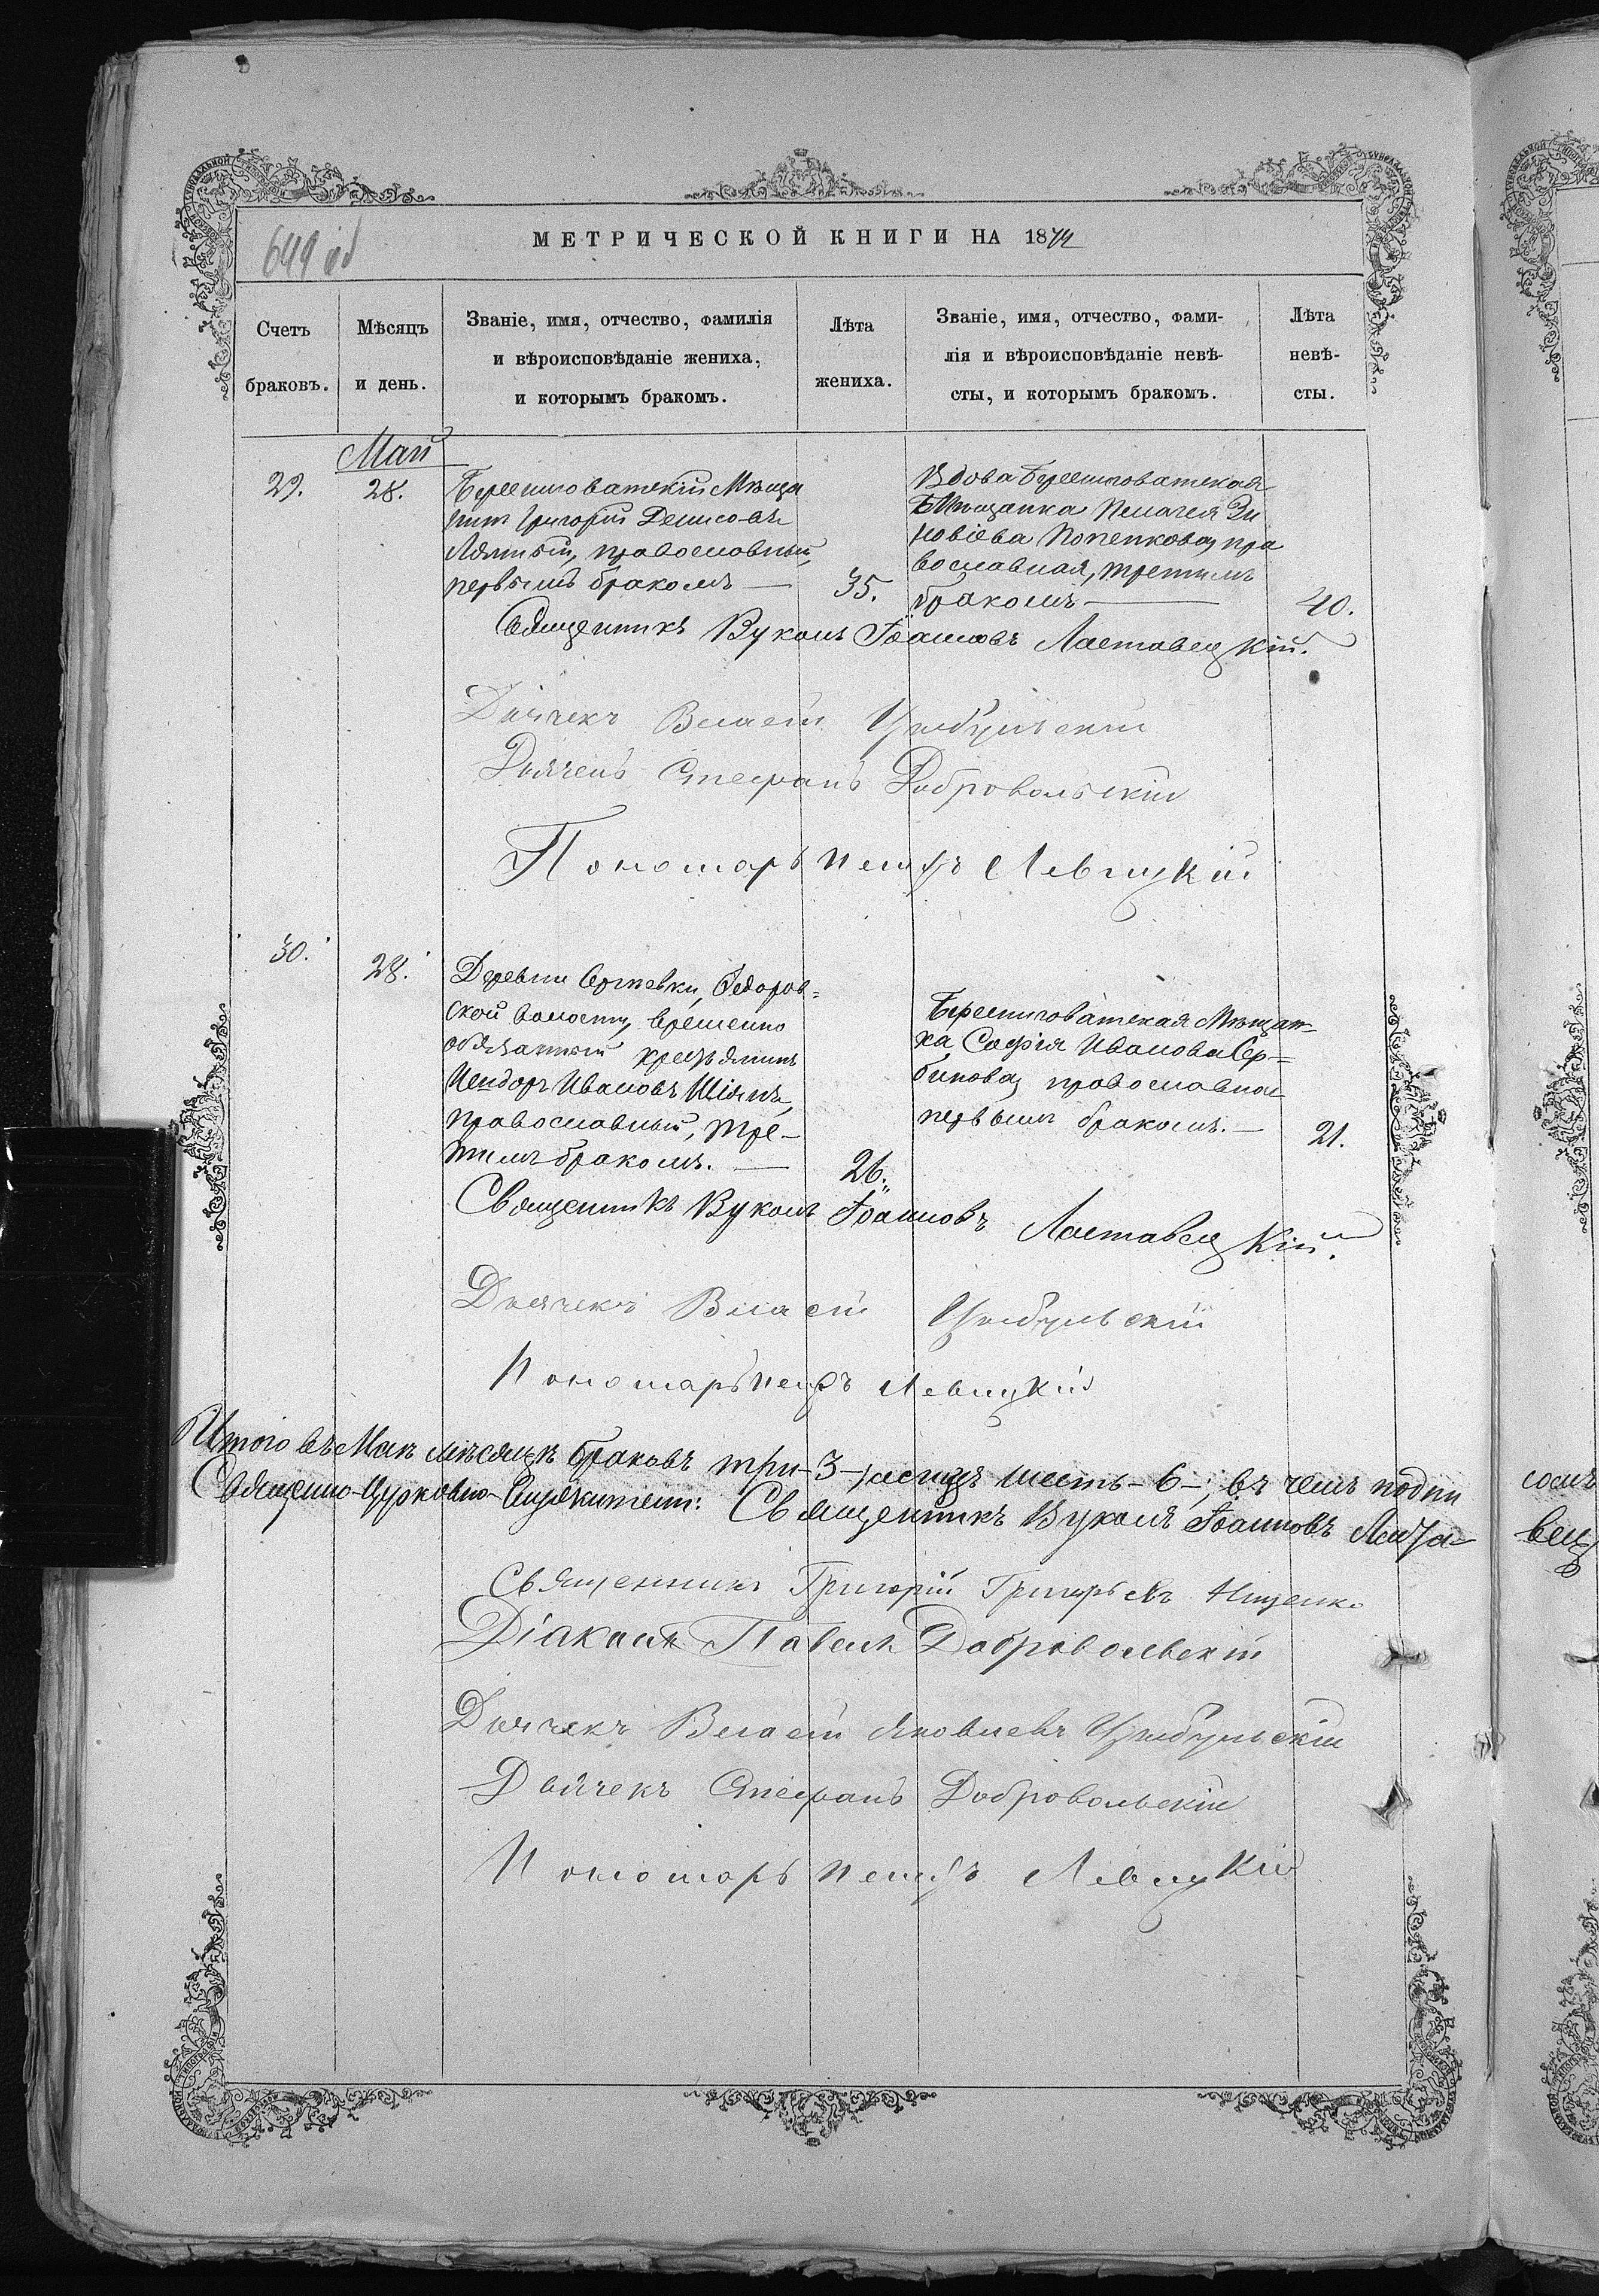 649 об
МЕТРИЧЕСКОЙ КНИГИ НА 1874
Счетъ браковъ.
Мѣсяцъ и день.
Званіе, имя, отчество, фамилія
и вѣроисповѣданіе жениха,
и которымъ бракомъ.
Лѣта
жениха.
Званіе, имя, отчество, фами-
лія и вѣроисповѣданіе невѣ-
сты, и которымъ бракомъ.
Лѣта
невѣ-
сты.
Май
29.
28.
Береснеговатскій Мѣща
нинъ Григорій Денисовъ
православный,
первымъ бракомъ —
35.
Вдова Береснеговатская
Мѣщанка Пелагея Зи
новіева Попенкова, пра
вославная, третимъ
бракомъ —
40.
Священникъ Вуколъ Іоанновъ Ластавецкій.
Дьячекъ Власій Цыбульскій
Дьячекъ Стефанъ Добровольскій
Пономарь Петръ Левицкій
30.
28.
Деревни Сергѣевки, Федоров=
ской волости, временно
обязанный крестьянинъ
Исидоръ Ивановъ Шіянъ,
православный, тре-
тимъ бракомъ. —
26.
Береснеговатская Мѣщан-
ка Софія Иванова Сер=
бинова, православная
первымъ бракомъ. —
21.
Священникъ Вуколъ Іоанновъ Ластавецкій.
Дьячекъ Власій Цыбульскій
Пономарь Петръ Левицкій
Итого въ Маѣ мѣсяцѣ браковъ три-3-, лицъ шесть-6-; въ чемъ подпи
Священно-Церковно-Служители: Священникъ Вуколъ Іоанновъ Ласта-
Священникъ Григорій Григорьевъ Ищенко
Діаконъ Павелъ Добровольскій
Дьячекъ Власій Яковлевъ Цыбульскій
Дьячекъ Стефанъ Добровольскій
Пономарь Петръ Левицкій
вец